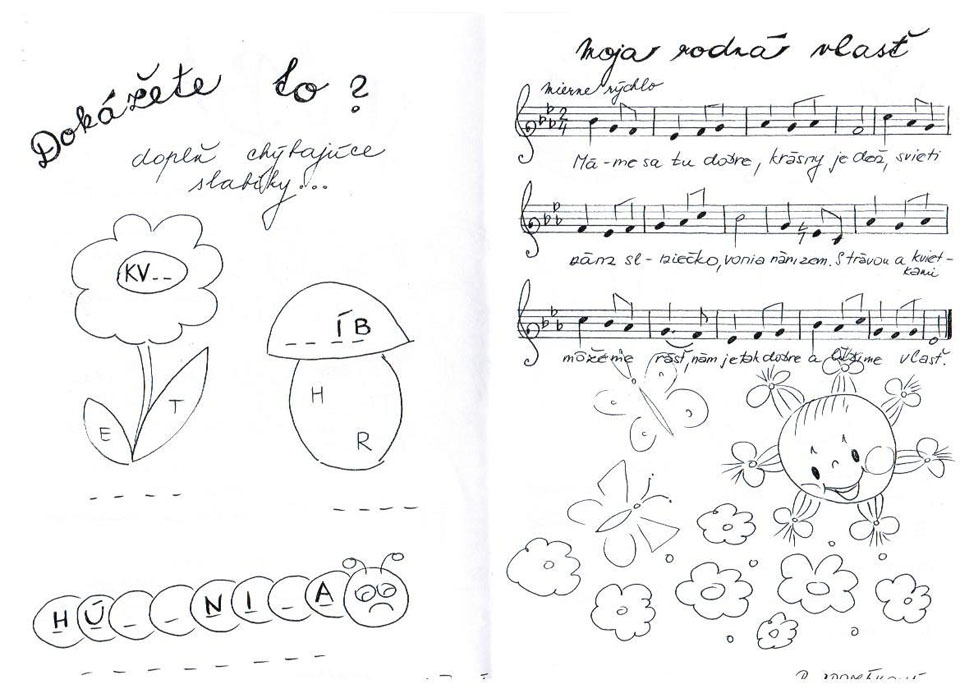 Dokážete to ?
doplň chýbajúce
slabiky...
KV_ _
E
T
_ _ _ _
_ _ Í B
H
R
_ _ _ _
H Ú _ _ N I _ A
_ _ _ _ _ _ _ _
Moja rodná vlasť
mierne rýchlo
2
4
Má-me sa tu dobre, krásny je deň, svieti
nám sl-niečko, vonia nám zem. S trávou a kviet-
kami
môžeme rásť, nám je tak dobre a vlasť.